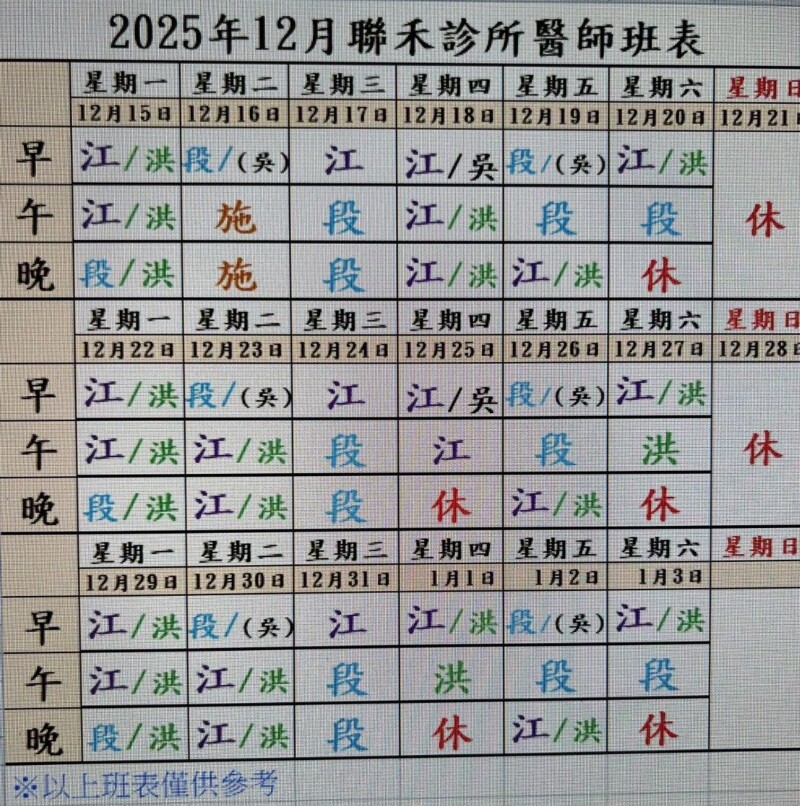 2025年12月聯禾診所醫師班表
星期一 星期二 星期三 星期四 星期五 星期六 星期日
12月15日 12月16日 12月17日 12月18日 12月19日 12月20日 12月21日
早 江/洪 段/(吳) 江 江/吳 段/(吳) 江/洪
午 江/洪 施 段 江/洪 段 段 休
晚 段/洪 施 段 江/洪 江/洪 休
星期一 星期二 星期三 星期四 星期五 星期六 星期日
12月22日 12月23日 12月24日 12月25日 12月26日 12月27日 12月28日
早 江/洪 段/(吳) 江 江/吳 段/(吳) 江/洪
午 江/洪 江/洪 段 江 段 洪 休
晚 段/洪 江/洪 段 休 江/洪 休
星期一 星期二 星期三 星期四 星期五 星期六 星期日
12月29日 12月30日 12月31日 1月1日 1月2日 1月3日
早 江/洪 段/(吳) 江 江/洪 段/(吳) 江/洪
午 江/洪 江/洪 段 洪 段 段
晚 段/洪 江/洪 段 休 江/洪 休
※以上班表僅供參考